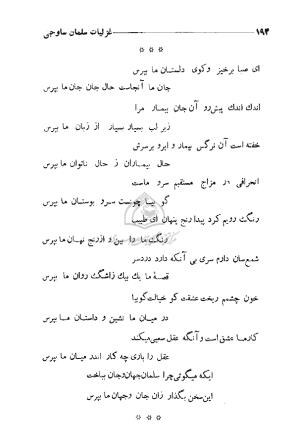 غزلیات سلمان ساوجی ۱۹۴
* * *
ای صبا برخیز و کوی دلستان ما بپرس
جان ما آنجاست حال جان جان ما بپرس
اندک اندک پیش رو آن جان بیمار مرا
زیر لب بسیار بسیار از زبان ما بپرس
خفته است آن نرگس بیمار و ابرو بر سرش
حال بیماران ز حال ناتوان ما بپرس
انحرافی در مزاج مستقیم سرو ماست
گو بیا چونست سرو بوستان ما بپرس
رنگ رویم کرد پیدا رنج پنهان ای طبیب
رنگ ما را بین و از رنج نهان ما بپرس
شمع سان دارم سری بی آنکه دارد دردسر
قصهٔ ما یک بیک ز اشک روان ما بپرس
خون چشمم ریخت عشقت کو خیالت گو بیا
در میان ما نشین و داستان ما بپرس
کار ما عشق است و آنگه عقل سعی میکند
عقل را باری چه کار اندر میان ما بپرس
ایکه میگوئی چرا سلمان جهان و جان بباخت
این سخن بگذار زان جان و جهان ما بپرس
* * *